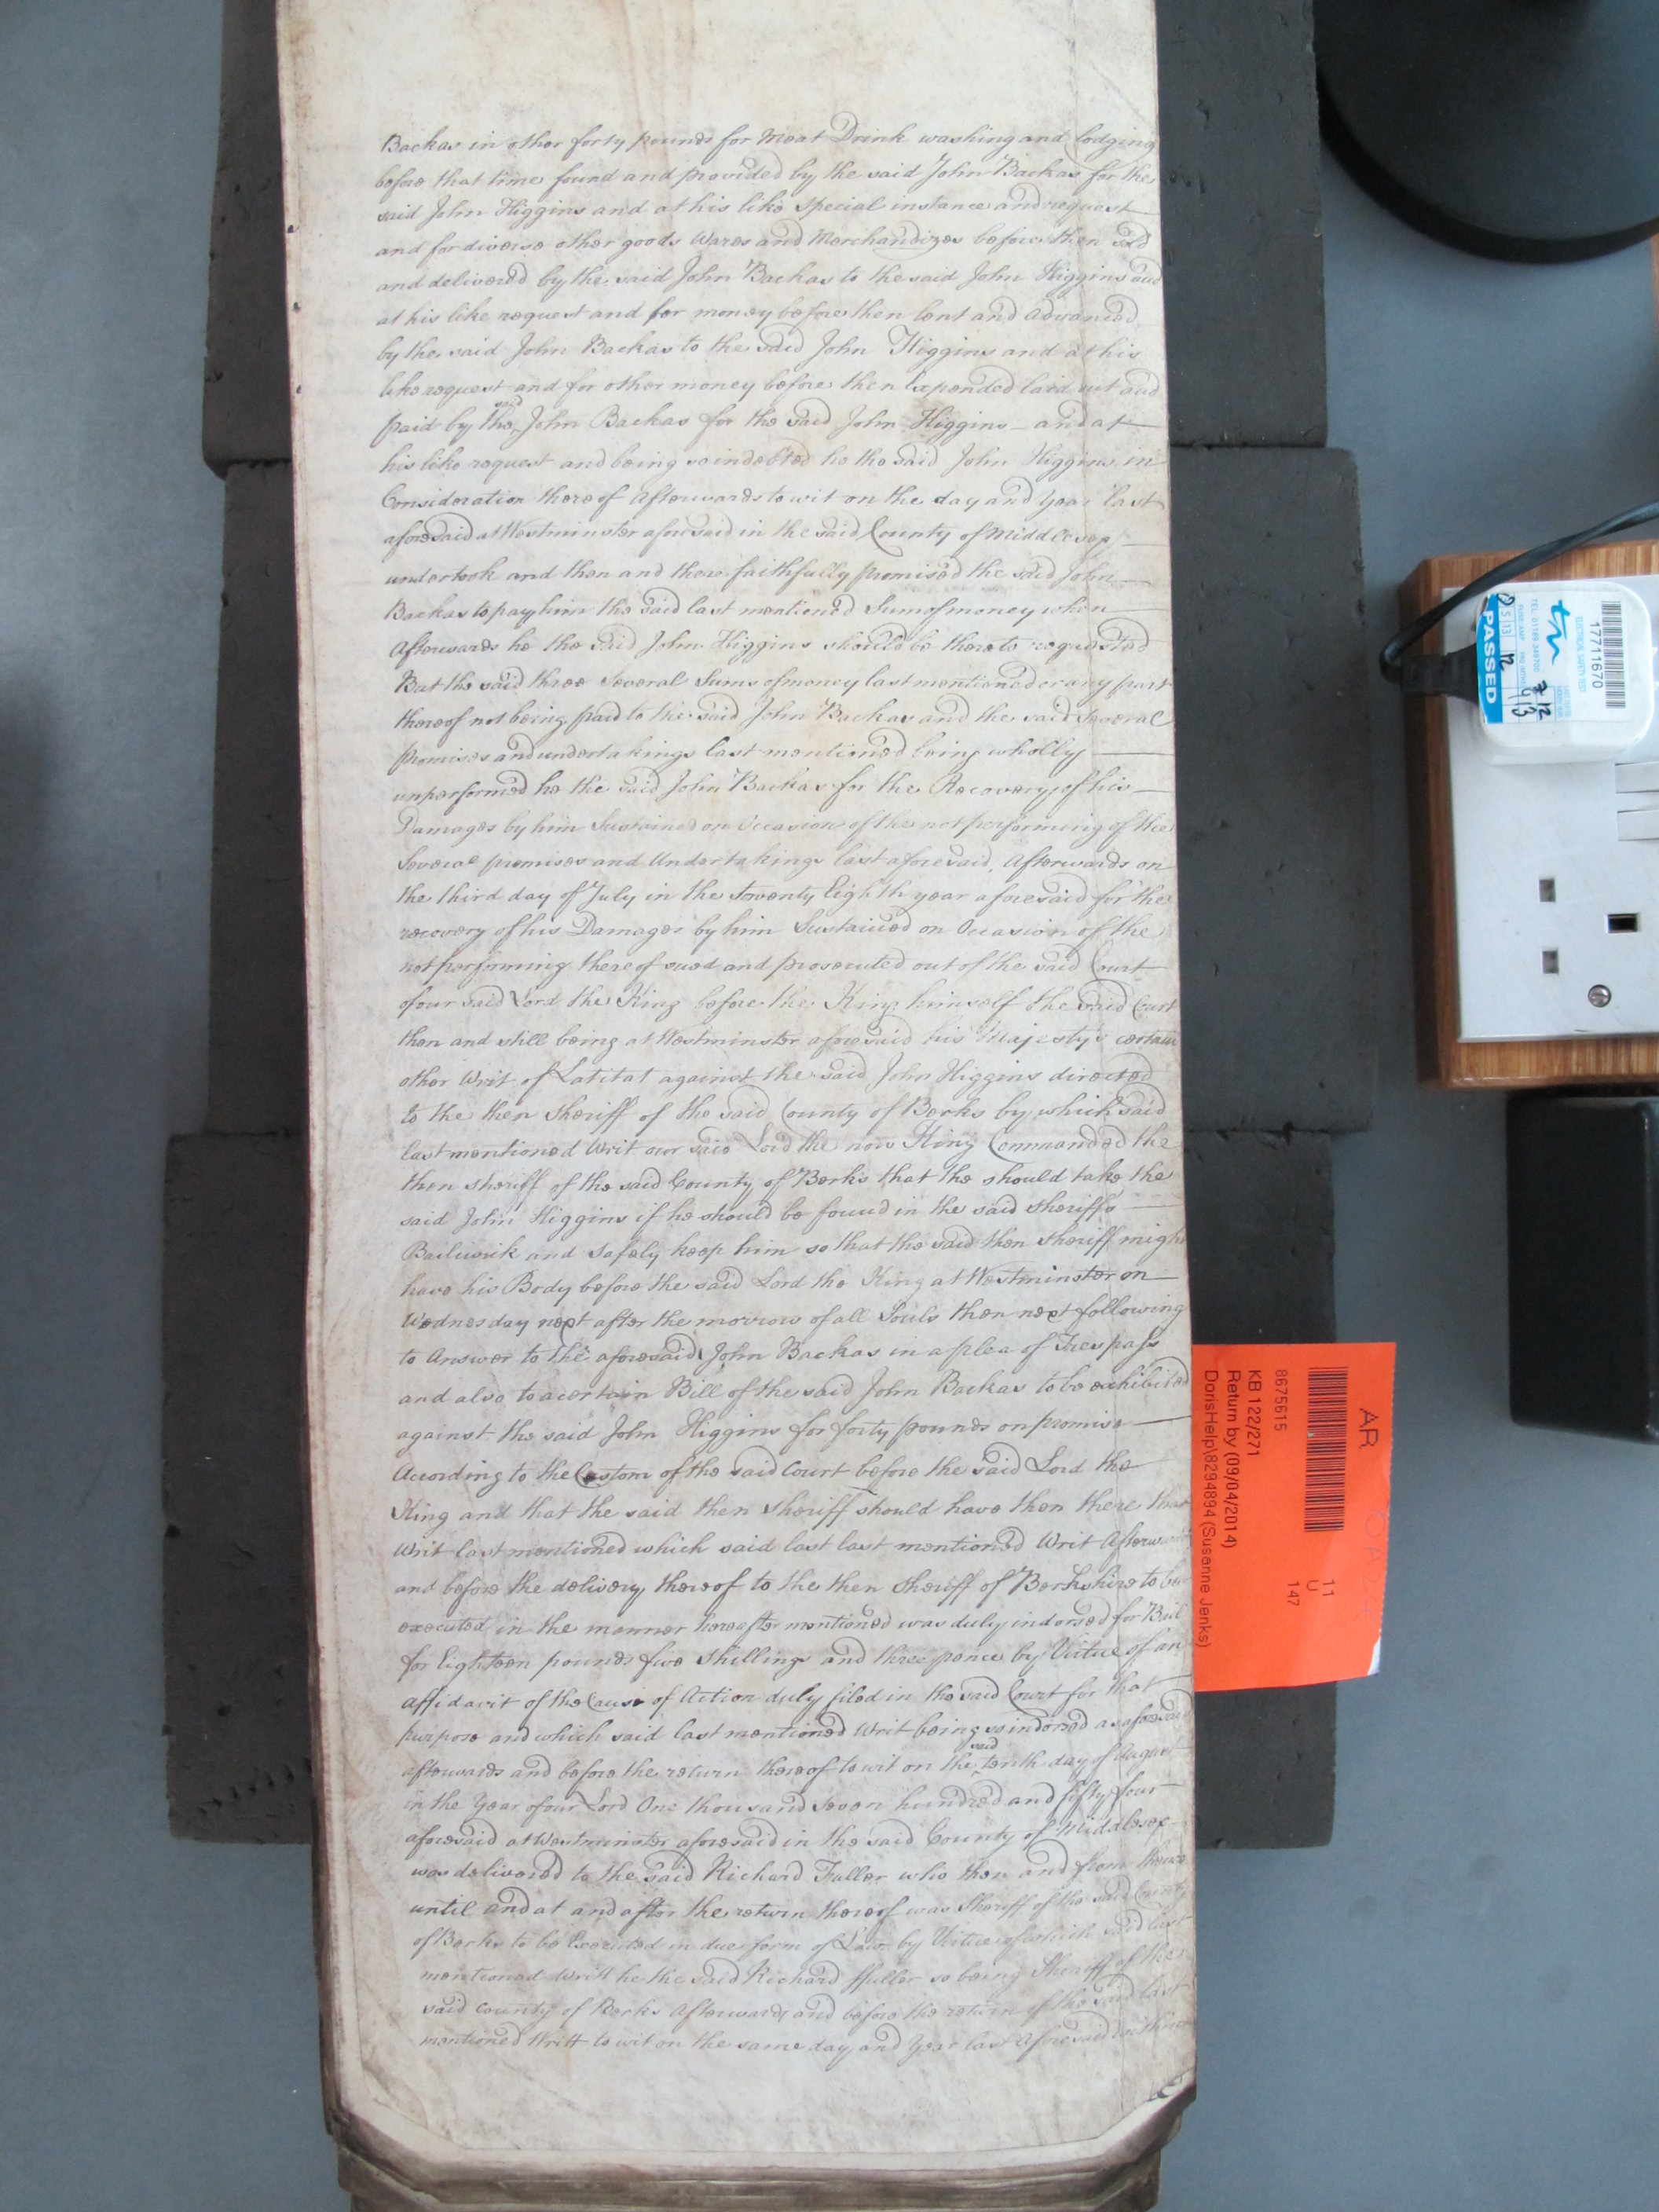 Backas in other forty pounds for Meat Drink washing and lodging
before that time found and provided by the said John Backas for the
said John Higgins and at his like special instance and request
and for diverse other goods Wares and Merchandizes before then sold
and delivered by the said John Backas to the said John Higgins and
at his like request and for money before then lent and advanced
by the said John Backas to the said John Higgins and at his
like request and for other money before then Expended laid out and
paid by the said John Backas for the said John Higgins and at
his like request and being so indebted he the said John Higgins in
Consideration thereof afterwards to wit on the day and Year last
aforesaid at Westminster aforesaid in the said County of Middlesex
undertook and then and there faithfully promised the said John
Backas to pay him the said last mentioned Sum of money when
Afterwards he the said John Higgins should be thereto requested
But the said three several Sums of money last mentioned or any part
thereof not being paid to the said John Backas and the said several
promises and undertakings last mentioned being wholly
unperformed he the said John Backas for the Recovery of his
Damages by him Sustained on Occasion of the not performing of the
Several promises and Undertakings last aforesaid, Afterwards on
the third day of July in the twenty Eighth year aforesaid for the
recovery of his Damages by him Sustained on Occasion of the
not performing thereof sued and prosecuted out of the said Court
of our said Lord the King before the King himself the said Court
then and still being at Westminster aforesaid his Majesty's certain
other Writ of Latitat against the said John Higgins directed
to the then Sheriff of the said County of Berks by which said
last mentioned Writ our said Lord the now King Commanded the
then Sheriff of the said County of Berks that the should take the
said John Higgins if he should be found in the said Sheriffs
Bailiwik and Safely keep him so that the said then Sheriff might
have his Body before the said Lord the King at Westminster on
Wednesday next after the morrow of all Souls then next following
to Answer to the aforesaid John Backas in a plea of Trespass
and also to a certain Bill of the said John Backas to be exhibited
against the said John Higgins for forty pounds on promise
According to the Custom of the said Court before the said Lord the
King and that the said then Sheriff should have then there that
Writ last mentioned which said last last mentioned Writ Afterwards
and before the delivery thereof to the then Sheriff of Berkshire to be
executed in the manner hereafter mentioned was duly indorsed for Bail
for Eighteen pounds five Shillings and three pence by Virtue of an
affidavit of the Cause of Action duly filed in the said Court for that
purpose and which said last mentioned Writ being so indorsed as aforesaid
afterwards and before the return thereof to wit on the said tenth day of August
in the Year of our Lord One thousand seven hundred and fifty four
aforesaid at Westminster aforesaid in the said County of Middlesex
was delivered to the said Richard Fuller who then and from thence
until and at and after the return thereof was Sheriff of the said County
of Berks to be Executed in due form of Law by Virtue of which said last
mentioned Writt he the said Richard ffuller so being Sheriff of the
said County of Berks Afterwards and before the return of the said last
mentioned Writt to wit on the same day and Year last aforesaid
AR
8675615
KB 122/271
Return by (09/04/2014)
DorisHelp\8294894 (Susanne Jenks)
11
U
147
17711670
ELECTRICAL SAFETY TEST
PASSED